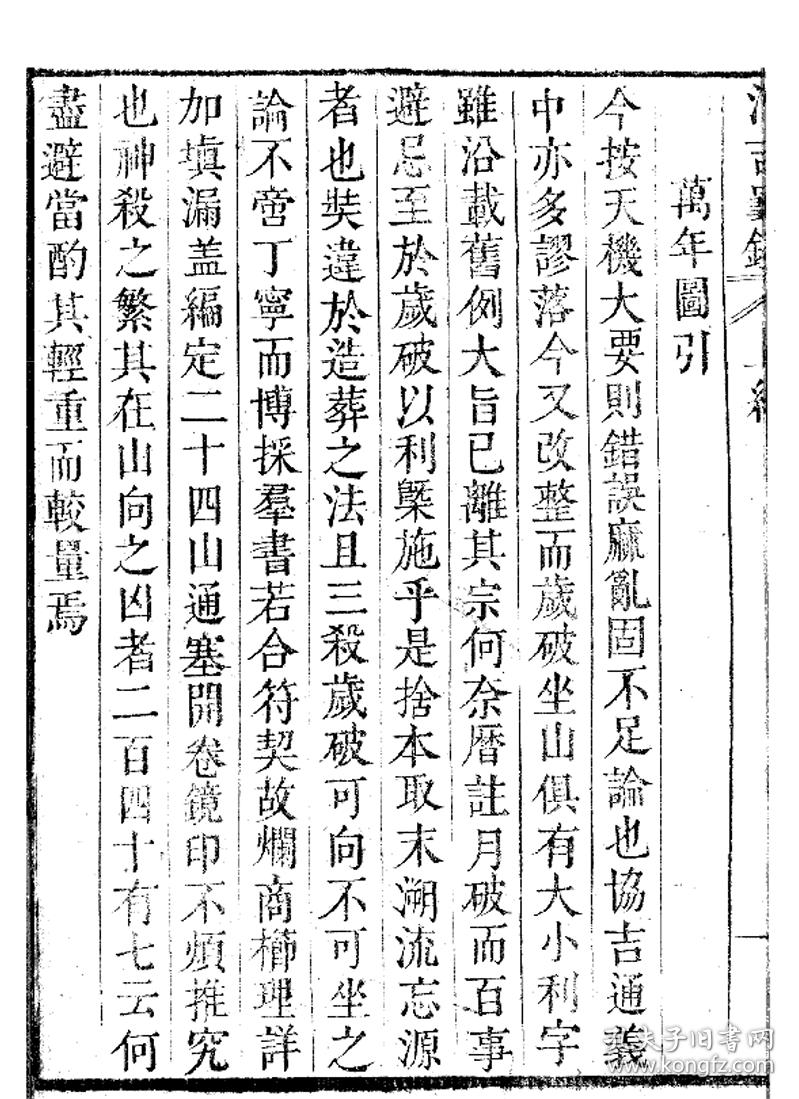 萬年圖引
今按天機大要則錯誤麻亂固不足論也協吉通義
中亦多謬落今又改整而歲破坐山俱有大小利字
雖沿載舊例大旨已離其宗何奈曆註月破而百事
避忌至於歲破以利槩施乎是捨本取末溯流忘源
者也奘違於造葬之法且三殺歲破可向不可坐之
論不啻丁寧而博採羣書若合符契故爛商櫛理詳
加塡漏盖編定二十四山通塞開卷鏡印不煩推究
也神殺之繁其在山向之凶者二百四十有七云何
盡避當酌其輕重而較量焉
孔夫子旧书网
www.kongfz.com